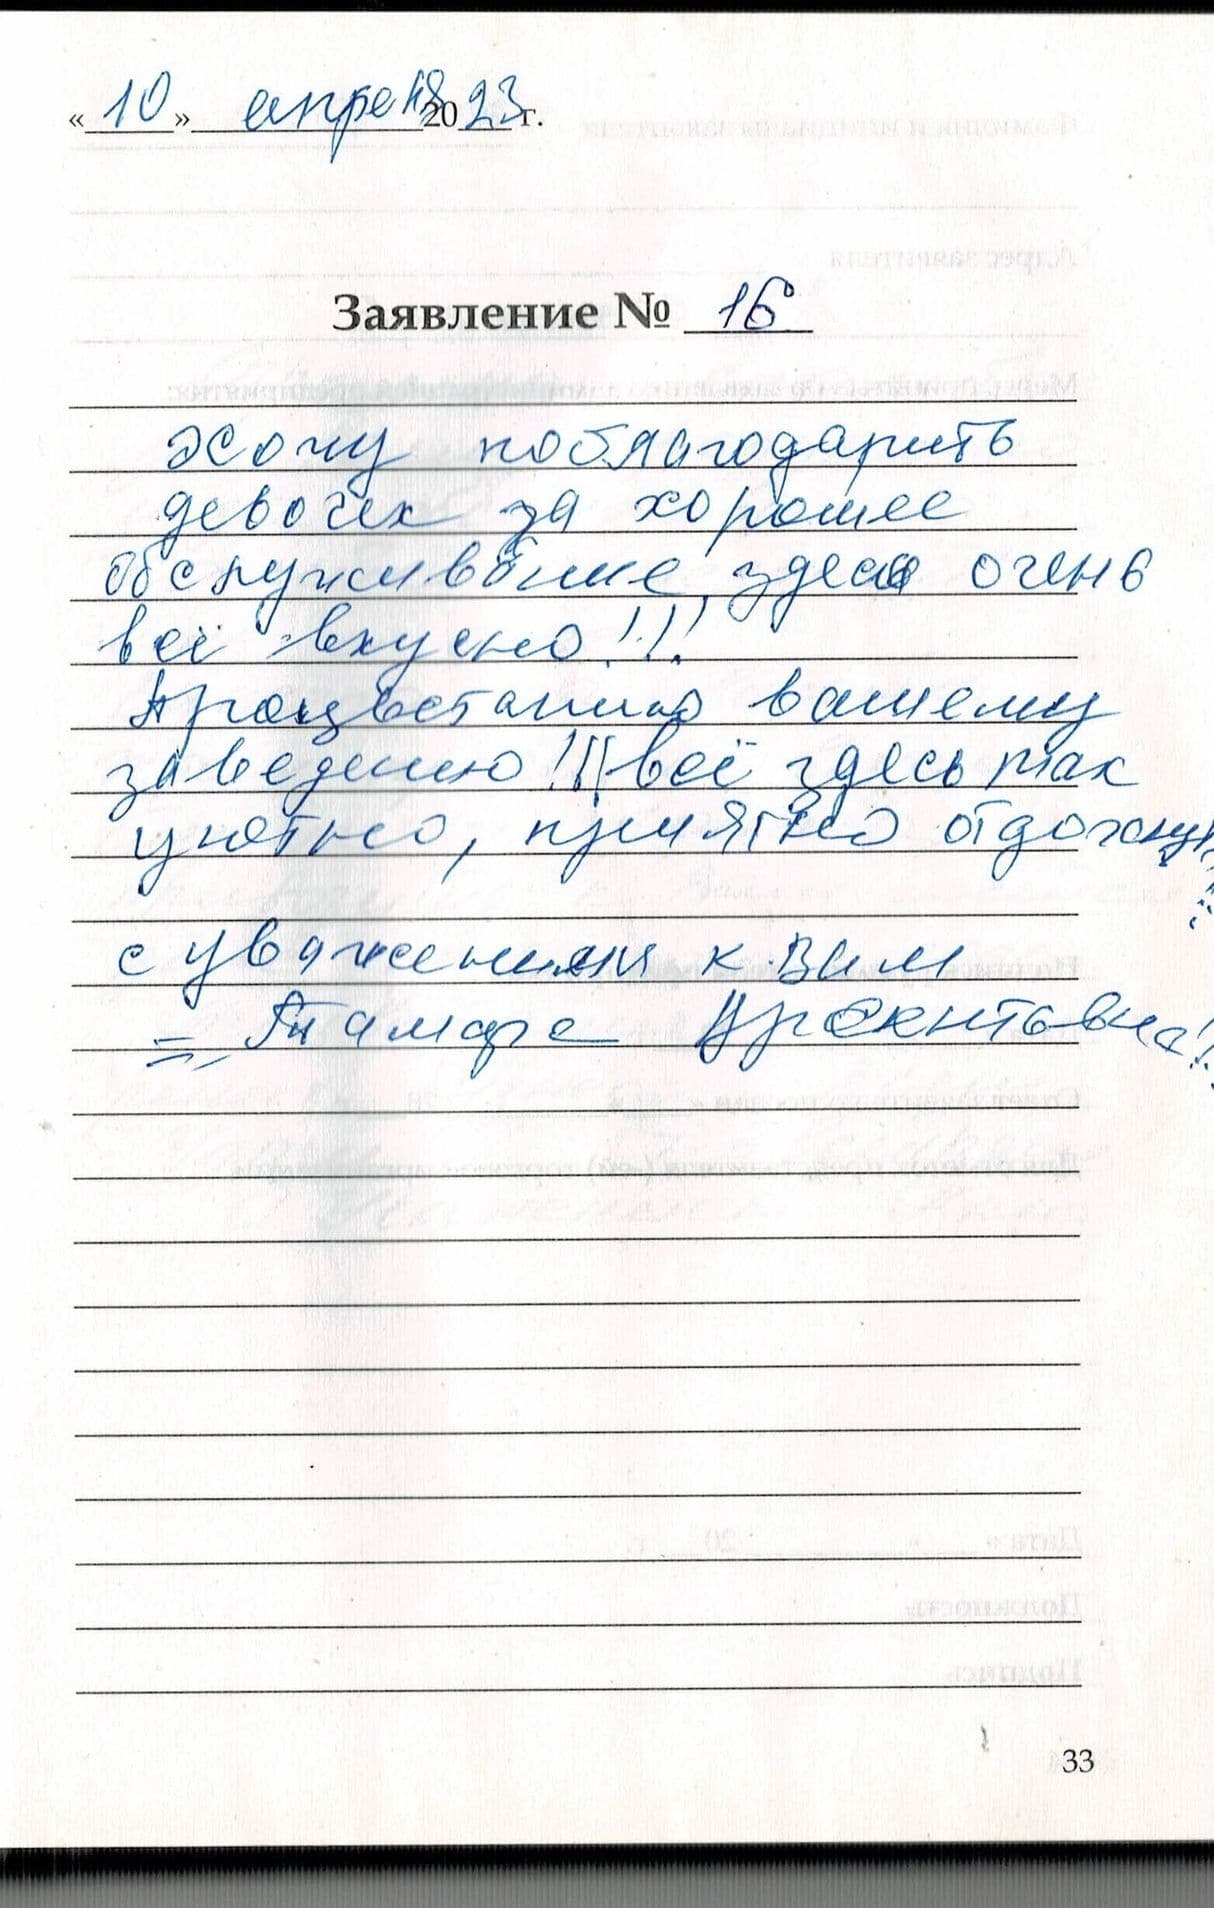 «10» апреля 2023 г.
Заявление № 16
Хочу поблагодарить
девочек за хорошее
обслуживание, здесь очень
всё вкусно!!!
Процветанию вашему
заведению!!! всё здесь так
уютно, приятно отдохнуть
с уважением к Вам
33